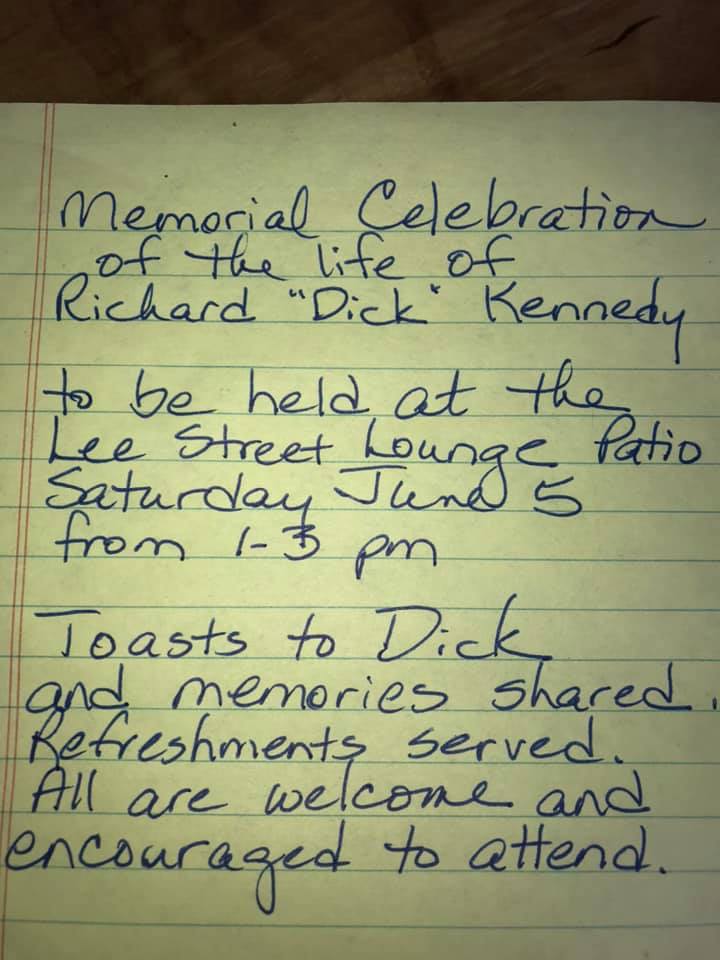 Memorial Celebration
of the life of
Richard "Dick" Kennedy
to be held at the
Lee Street Lounge Patio
Saturday June 5
from 1-3 pm
Toasts to Dick
and memories shared.
Refreshments served.
All are welcome and
encouraged to attend.